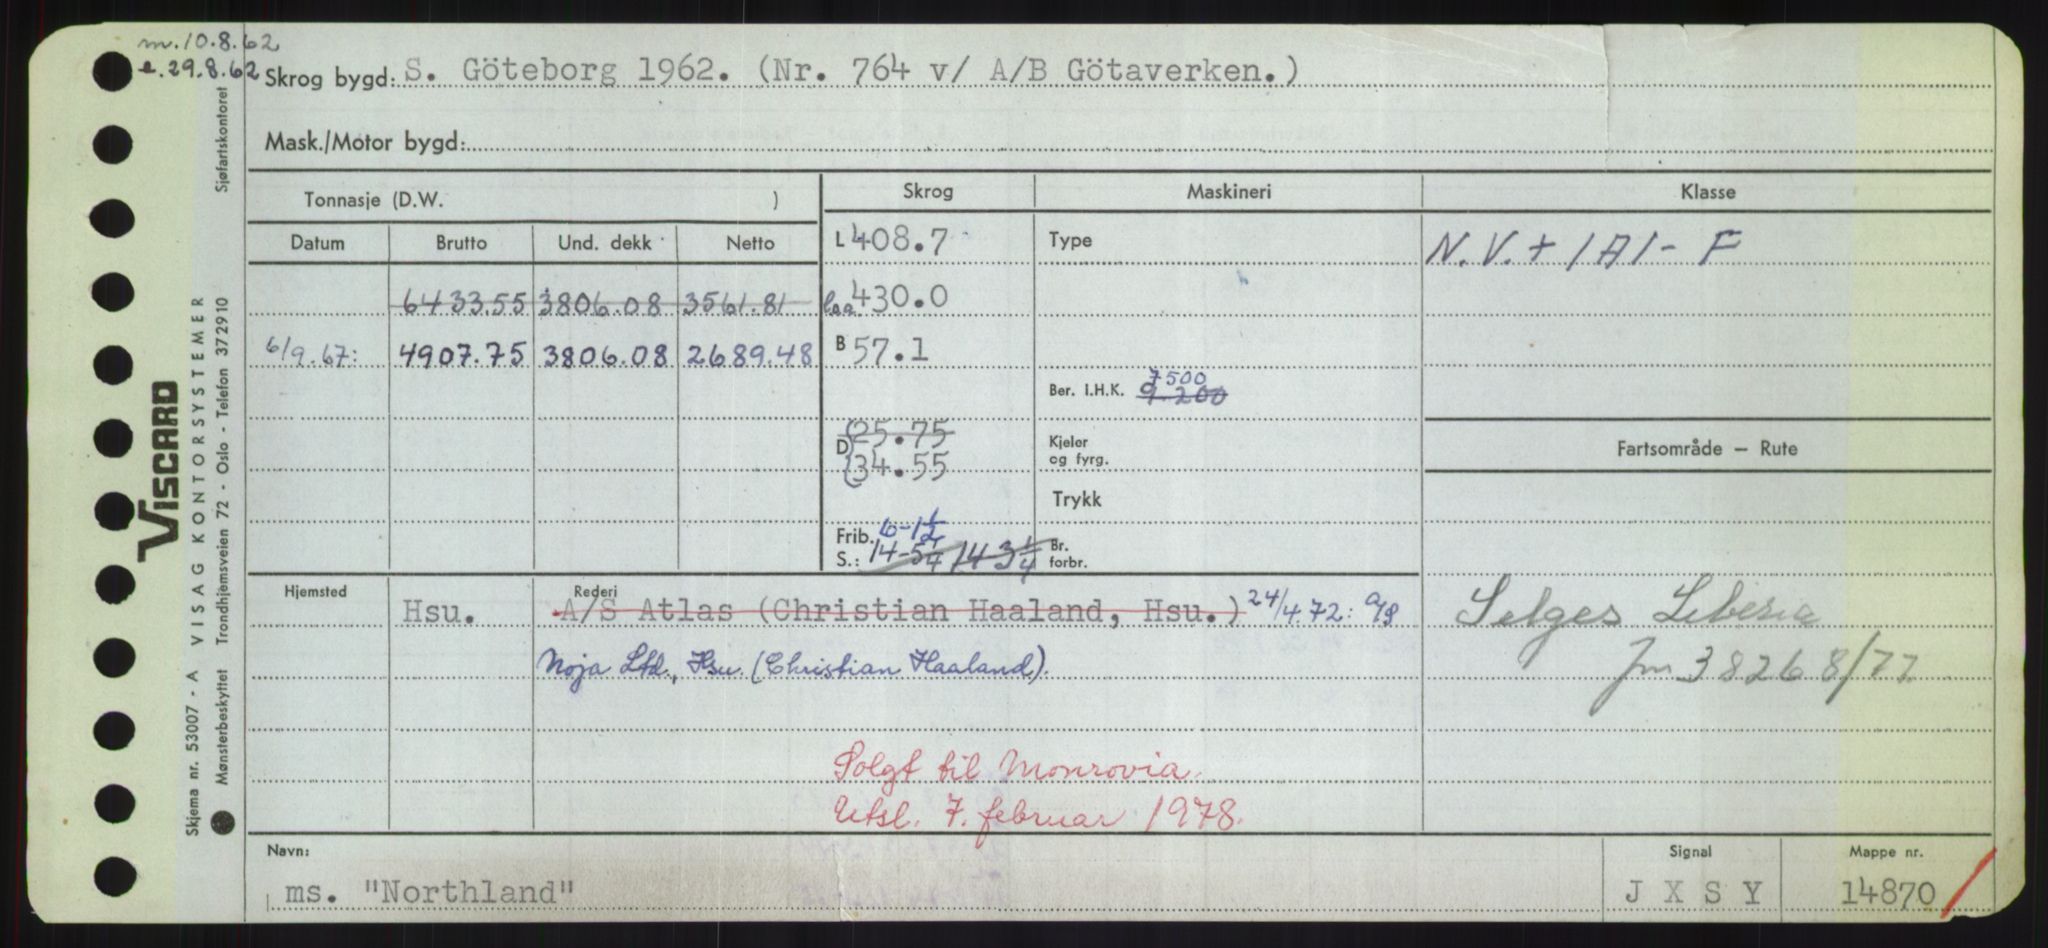 m. 10.8.62
e. 29.8.62
Skrog bygd: S. Göteborg 1962. (Nr. 764 v/ A/B Götaverken.)
Mask./Motor bygd:
Sjøfartskontoret
Tonnasje (D.W. )
Skrog
Maskineri
Klasse
Datum
Brutto
Und. dekk
Netto
L 408.7
Type
N.V. + 1A1 - F
6433.55 3806.08 3561.81
loa 430.0
6/9.67: 4907.75 3806.08 2689.48
B 57.1
7500
Ber. I.H.K. 9.200
D (25.75
(34.55
Kjeler
og fyrg.
Fartsområde — Rute
Trykk
Frib. 10-1 1/2
S.: 14-5 1/4 14 3 1/4
Br.
forbr.
Hjemsted
Rederi
Hsu.
A/S Atlas (Christian Haaland, Hsu.) 24/4.72: A/S
Noja Ltd., Hsu. (Christian Haaland).
Selges Liberia
Jnr 38268/77
Solgt til Monrovia.
Utsl. 7. februar 1978.
Navn:
ms. "Northland"
Signal
J X S Y
Mappe nr.
14870
VISCARD
Skjema nr. 53007 - A VISAG KONTORSYSTEMER
Mønsterbeskyttet Trondhjemsveien 72 - Oslo - Telefon 372910